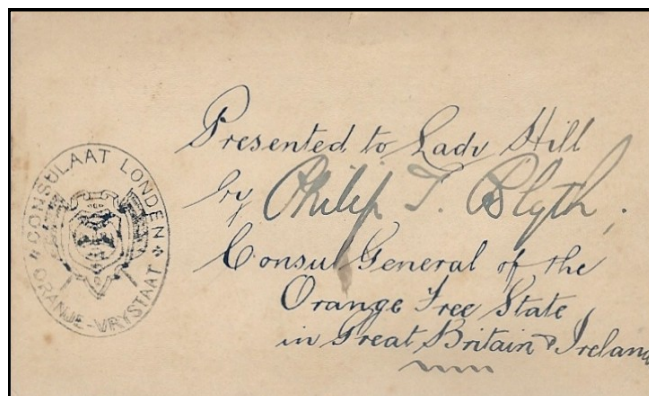 CONSULAAT LONDEN
ORANJE-VRYSTAAT
Presented to Lady Hill
by Philip T. Blyth,
Consul General of the
Orange Free State
in Great Britain & Ireland